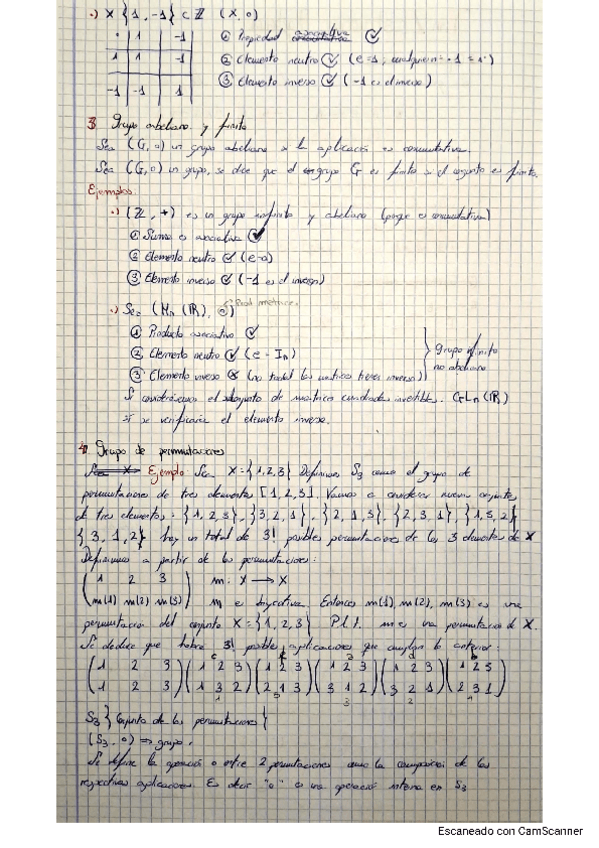 ·) X {1, -1} ⊂ Z (X, o)
o 1 -1
1 1 -1
-1 -1 1
① Propiedad asociativa ✓
② Elemento neutro ✓ (e=1, 
③ Elemento inverso ✓ (-1 es el inverso)
3 Grupo abeliano y finito
Sea (G, o) un grupo abeliano si la aplicación es conmutativa.
Sea (G, o) un grupo, se dice que el grupo G es finito si el conjunto es finito.
Ejemplos.
·) (Z, +) es un grupo infinito y abeliano (porque es conmutativa)
① Suma es asociativa ✓
② Elemento neutro ✓ (e=0)
③ Elemento inverso ✓ (-1 es el inverso)
·) Sea (Mn (R), o) Prod matrices.
① Producto asociativo ✓
② Elemento neutro ✓ (e = In)
③ Elemento inverso ⊗ (no todas las matrices tienen inverso)
} grupo infinito
no abeliano
Si consideramos el subconjunto de matrices cuadradas invertibles. GLn (R)
si se verificaría el elemento inverso.
4 Grupo de permutaciones
Ejemplo Sea X={1,2,3} Definimos S3 como el grupo de
permutaciones de tres elementos [1,2,3]. Vamos a considerar nuevos conjuntos
de tres elementos: {1,2,3}, {3,2,1}, {2,1,3}, {2,3,1}, {1,3,2}
{3,1,2} hay un total de 3! posibles permutaciones de los 3 elementos de X
Definimos a partir de las permutaciones:
( 1 2 3 ) m: X → X
( m(1) m(2) m(3) ) m es biyectiva. Entonces m(1), m(2), m(3) es una
permutación del conjunto X={1,2,3} P.l.t. m es una permutación de X.
Se deduce que habrá 3! posibles aplicaciones que cumplan lo anterior:
(1 2 3) (1 2 3) (1 2 3) (1 2 3) (1 2 3) (1 2 3)
(1 2 3) (1 3 2) (2 1 3) (3 1 2) (3 2 1) (2 3 1)
S3 {Conjunto de las permutaciones}
(S3, o) ⇒ grupo.
Se define la operación o entre 2 permutaciones como la composición de las
respectivas aplicaciones. Es decir "o" es una operación interna en S3
Escaneado con CamScanner